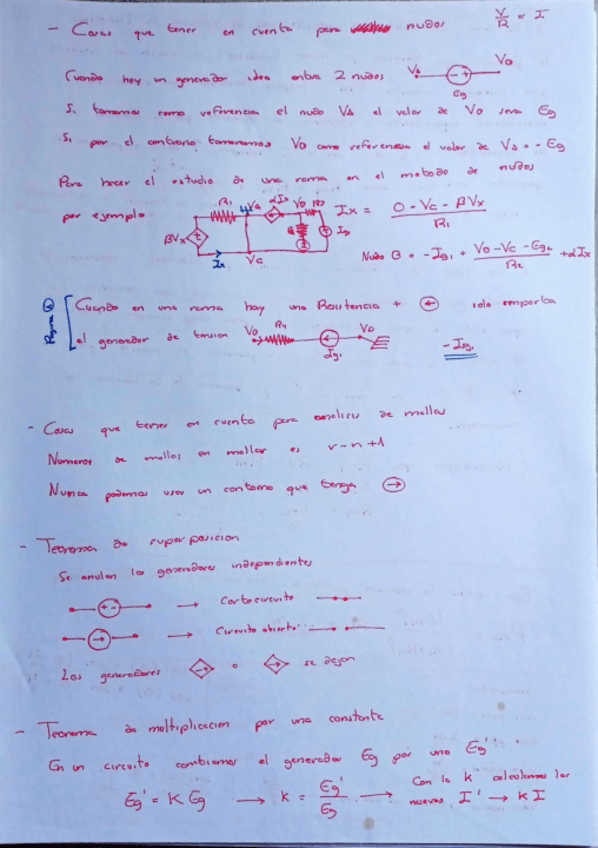 - Cosas que tener en cuenta para nudos
V/R = I
Cuando hay un generador idea entre 2 nudos
VA VO
Eg
Si tomamos como referencia el nudo VA el valor de VO sera Eg
Si por el contrario tomaramos VO como referencia el valor de VA = - Eg
Para hacer el estudio de una rama en el metodo de nudos
por ejemplo
R1 VA αIx VO R2
βVx Ix VC
Ix = (0 - VC - βVx) / R1
Nudo B = -Ig1 + (VO - VC - Eg2) / R2 + αIx
Pagina 4
Cuando en una rama hay una Resistencia + solo importa
el generador de tension
VO R4 Ig1 VO
- Ig1
- Cosas que tener en cuenta para analisis de mallas
Numeros de mallas en mallas es r-n+1
Nunca podemos usar un contorno que tenga
- Teorema de superposicion
Se anulan los generadores independientes
→ Cortocircuito
→ Circuito abierto
Los generadores o se dejan
- Teorema de multiplicacion por una constante
En un circuito cambiamos el generador Eg por uno Eg'
Eg' = K Eg → k = Eg'/Eg → Con la k calculamos las
nuevas I' → k I